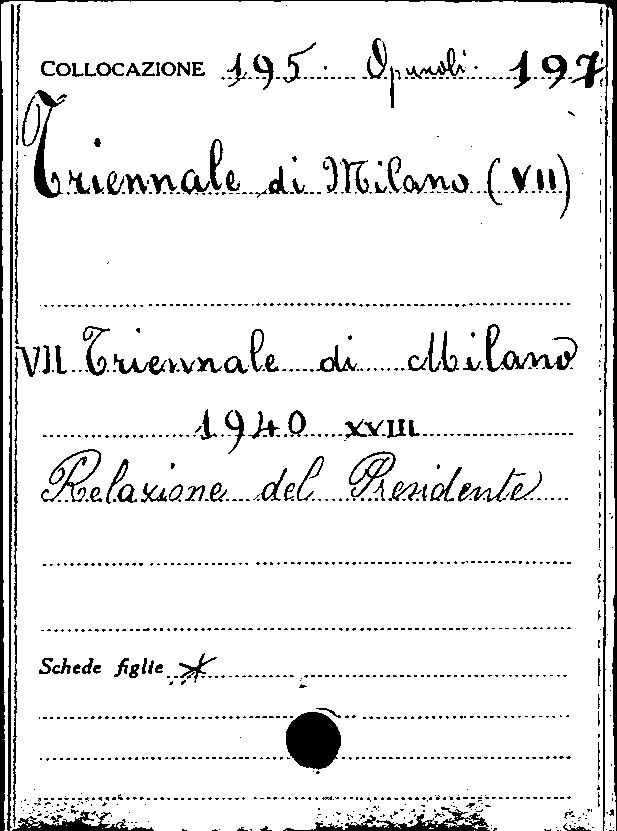 COLLOCAZIONE 195. Opuscoli. 197
Triennale di Milano (VII)
VII Triennale di Milano
1940 XVIII
Relazione del Presidente
Schede figlie *